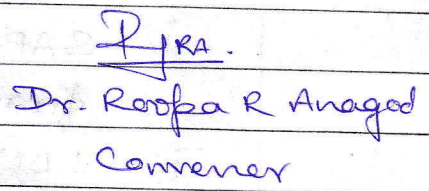 RA.
Dr. Roopa R Anagod
Convener